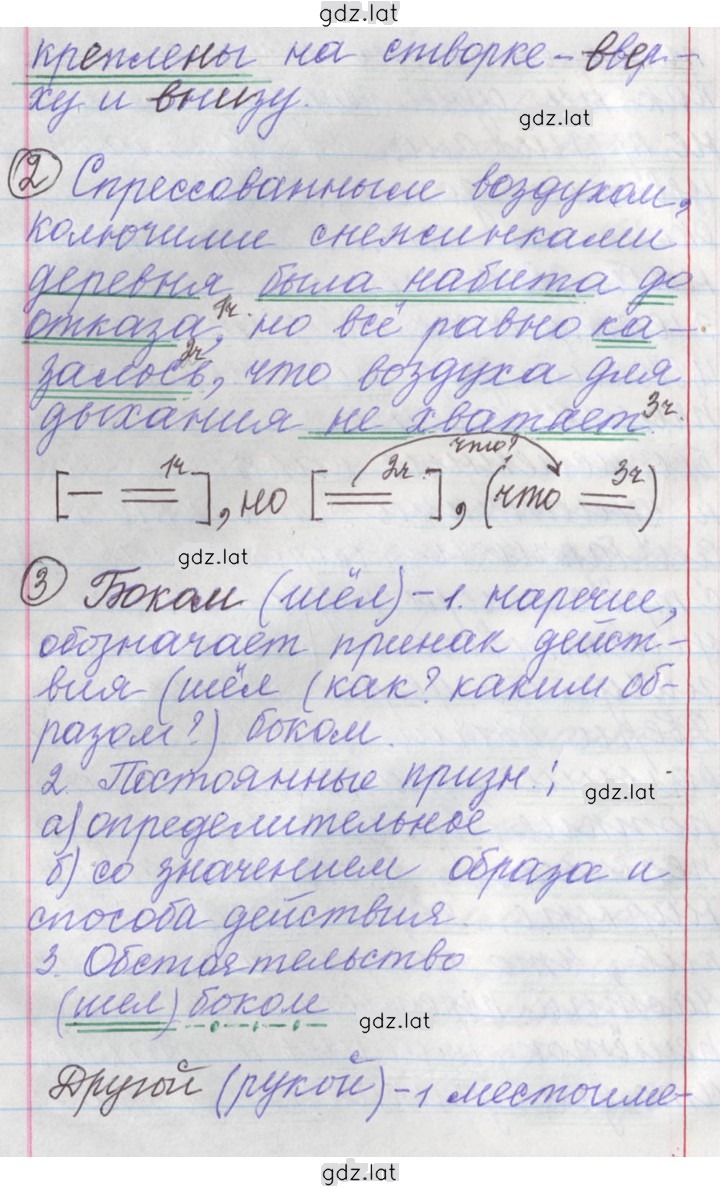 gdz.lat
креплены на створке - ввер-
ху и внизу.
gdz.lat
2 Спрессованным воздухом,
колючими снежинками
деревня была набита до
отказа 1ч., но всё равно ка-
залось 2ч, что воздуха для
дыхания не хватает 3ч.
что?
[— = 1ч], но [= 2ч.], (что = 3ч)
gdz.lat
3 Боком (шёл) - 1. наречие,
обозначает принак дейст-
вия (шёл (как? каким об-
разом?) боком.
2. Постоянные призн.:
gdz.lat
а) определительное
б) со значением образа и
способа действия.
3. Обстоятельство
(шел) боком
gdz.lat
Другой (рукой) - 1 местоиме-
gdz.lat